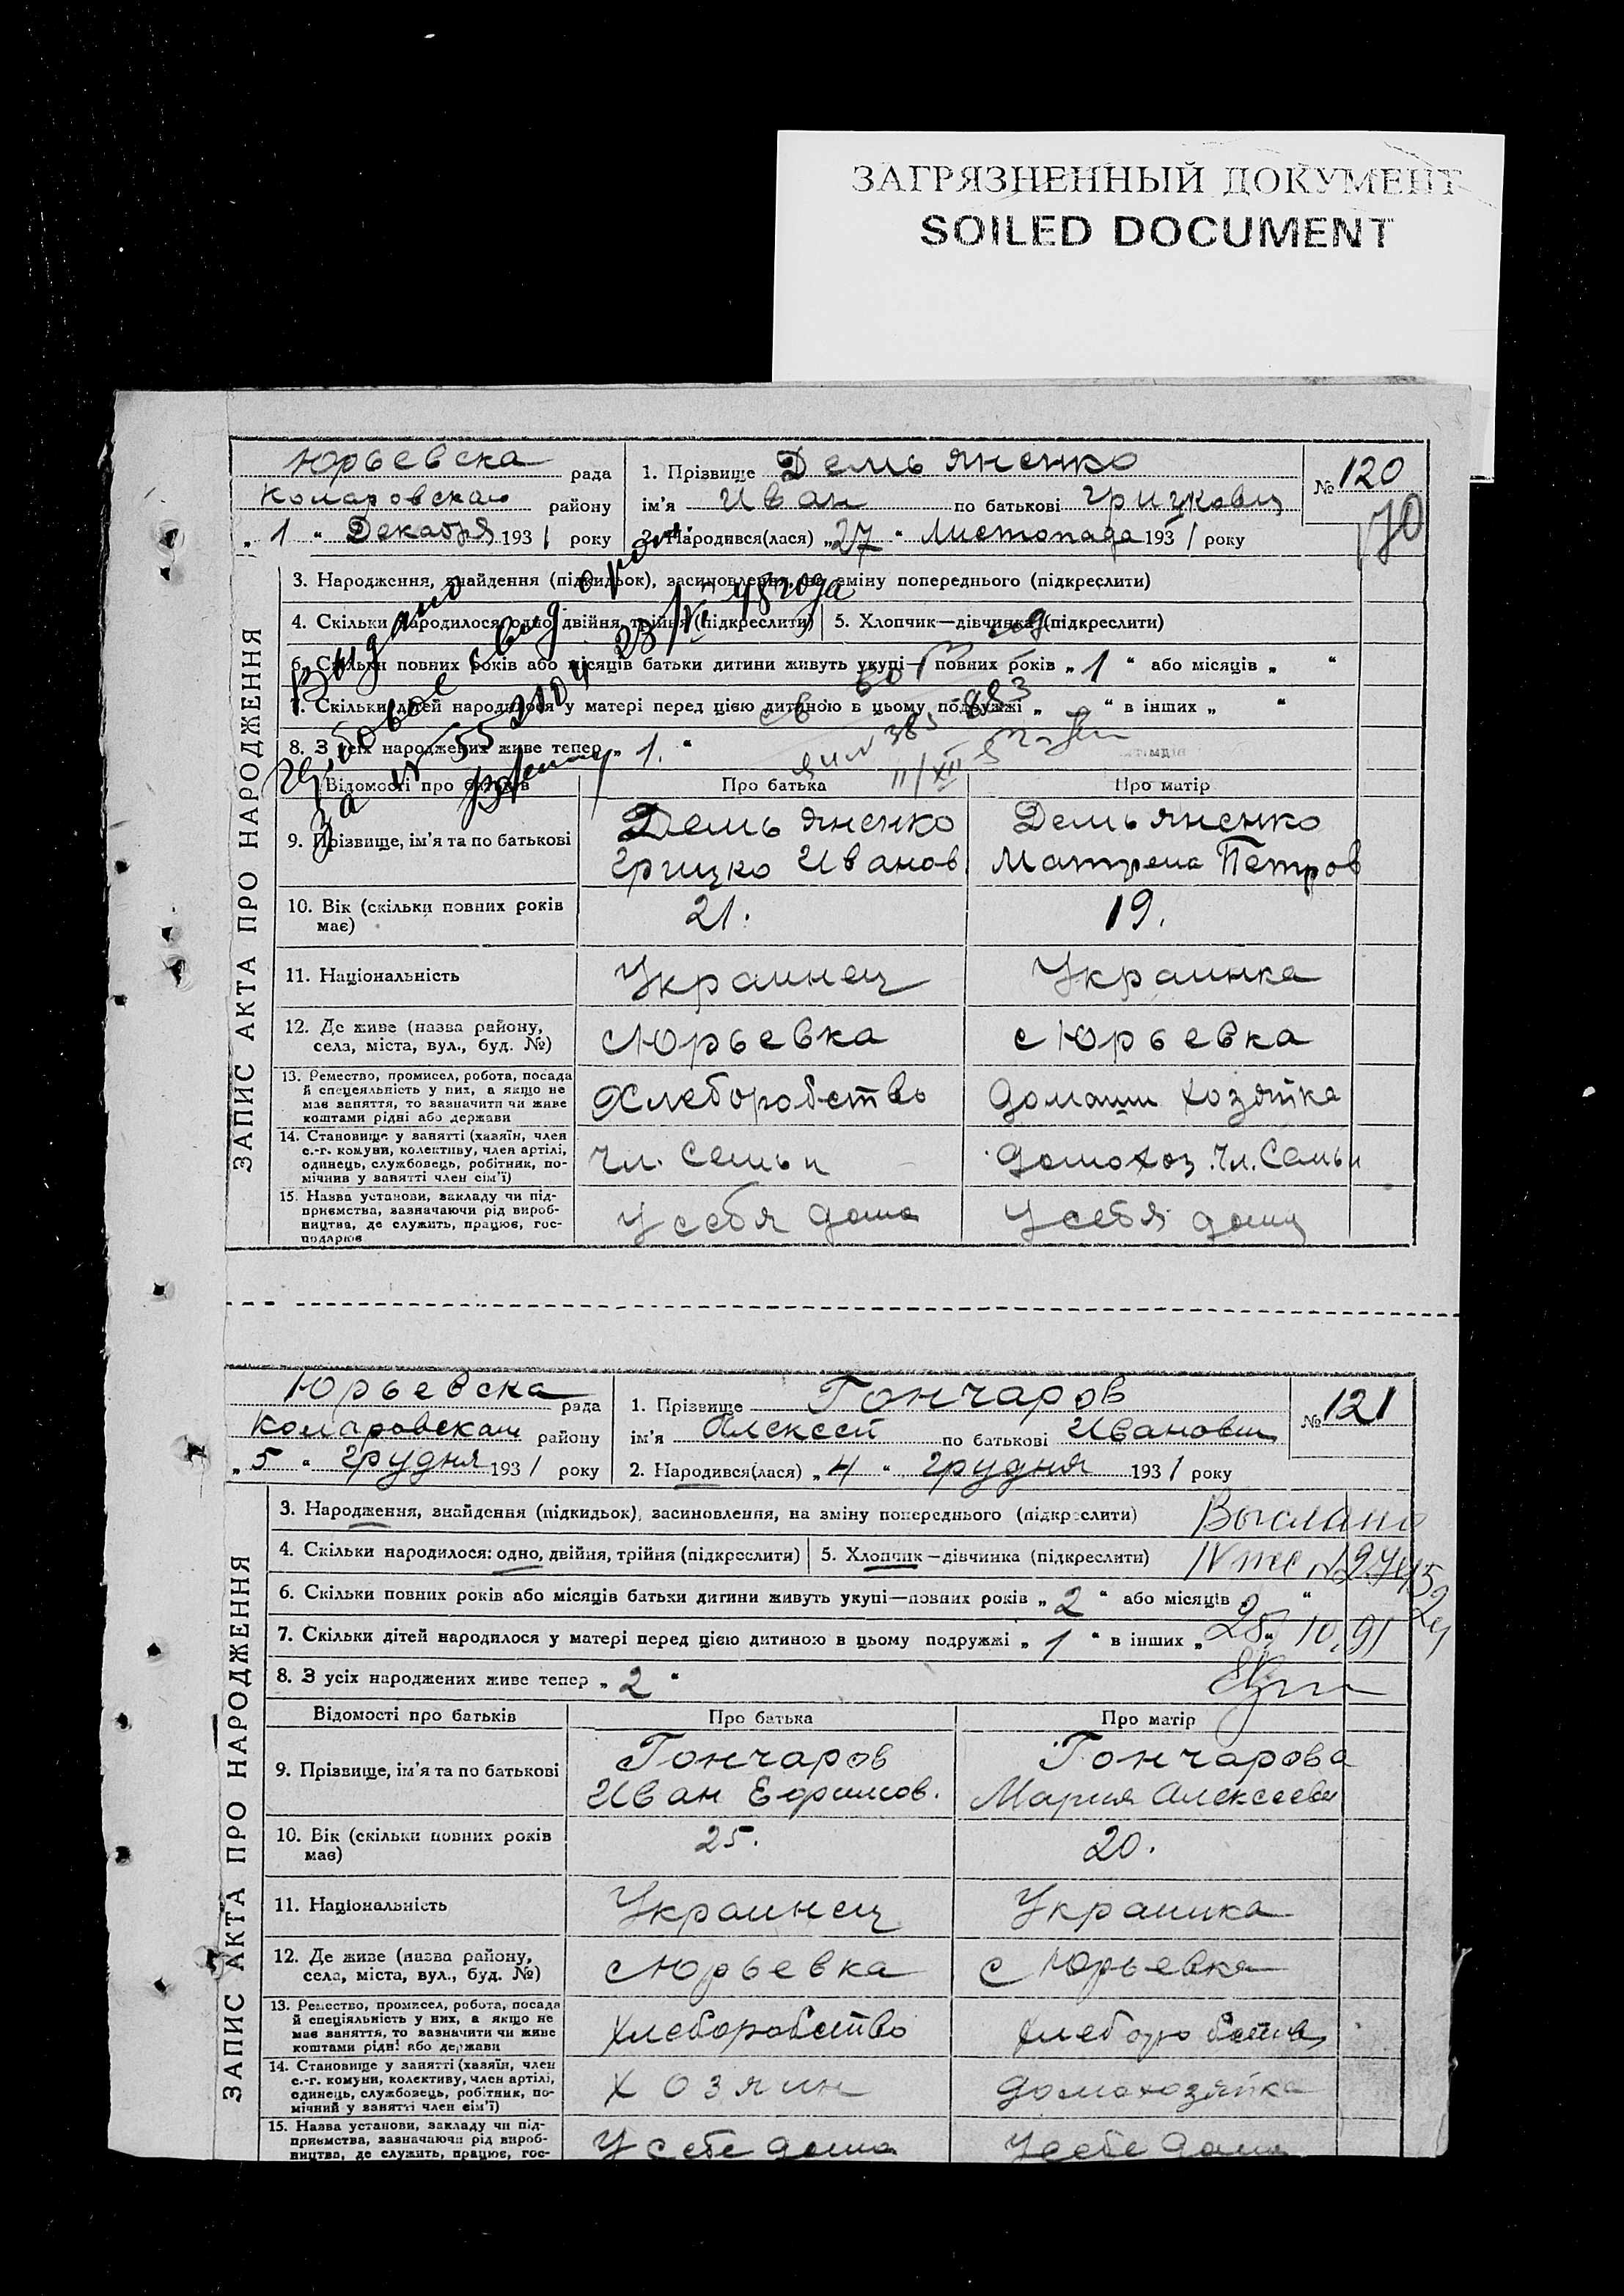 ЗАГРЯЗНЕННЫЙ ДОКУМЕНТ
SOILED DOCUMENT
Юрьевска рада
Комаровская району
„ 1 “ Декабря 1931 року
1. Прізвище Демьяненко
ім'я Иван по батькові Грицкович
2. Народився(лася) „27“ Листопада 1931 року
№ 120
70
ЗАПИС АКТА ПРО НАРОДЖЕННЯ
3. Народження, знайдення (підкидьок), засиновлення, на зміну попереднього (підкреслити)
4. Скільки народилося: одно, двійня, трійня (підкреслити) 5. Хлопчик—дівчинка (підкреслити)
6. Скільки повних років або місяців батьки дитини живуть укупі—повних років „ 1 “ або місяців „ “
7. Скільки дітей народилося у матері перед цією дитиною в цьому подружжі „ - “ в інших „ “
8. З усіх народжених живе тепер „ 1. “
Видано
23/VI 48 года
Відомості про батьків Про батька Про матір
9. Прізвище, ім'я та по батькові
Демьяненко Грицко Иванов.
Демьяненко Матрена Петров
10. Вік (скільки повних років має) 21. 19.
11. Національність Украинец Украинка
12. Де живе (назва району, села, міста, вул., буд. №) с Юрьевка с Юрьевка
13. Ремество, промисел, робота, посада й спеціяльність у них, а якщо не має заняття, то зазначити чи живе коштами рідні або держави
Хлеборобство домашн хозяйка
14. Становище у занятті (хазяїн, член с.-г. комуни, колективу, член артілі, одинець, службовець, робітник, помічний у занятті член сім'ї)
Чл. Семьи домохоз. Чл. Семьи
15. Назва установи, закладу чи підприємства, зазначаючи рід виробництва, де служить, працює, господарює
У себя дома У себя дома
Юрьевска рада
Комаровская району
„ 5 “ Грудня 1931 року
1. Прізвище Гончаров
ім'я Алексей по батькові Иванович
2. Народився(лася) „ 4 “ Грудня 1931 року
№ 121
ЗАПИС АКТА ПРО НАРОДЖЕННЯ
3. Народження, знайдення (підкидьок), засиновлення, на зміну попереднього (підкреслити)
Выслано
4. Скільки народилося: одно, двійня, трійня (підкреслити) 5. Хлопчик—дівчинка (підкреслити)
6. Скільки повних років або місяців батьки дитини живуть укупі—повних років „ 2 “ або місяців „ “
7. Скільки дітей народилося у матері перед цією дитиною в цьому подружжі „ 1 “ в інших „ “
28.10.91
8. З усіх народжених живе тепер „ 2 “
Відомості про батьків Про батька Про матір
9. Прізвище, ім'я та по батькові
Гончаров Иван Ефимов.
Гончарова Мария Алексеевн
10. Вік (скільки повних років має) 25. 20.
11. Національність Украинец Украинка
12. Де живе (назва району, села, міста, вул., буд. №) с Юрьевка с Юрьевка
13. Ремество, промисел, робота, посада й спеціяльність у них, а якщо не має заняття, то зазначити чи живе коштами рідні або держави
Хлеборобство Хлеборобство
14. Становище у занятті (хазяїн, член с.-г. комуни, колективу, член артілі, одинець, службовець, робітник, помічний у занятті член сім'ї)
Хозяин домохозяйка
15. Назва установи, закладу чи підприємства, зазначаючи рід виробництва, де служить, працює, гос-
У себе дома У себе дома